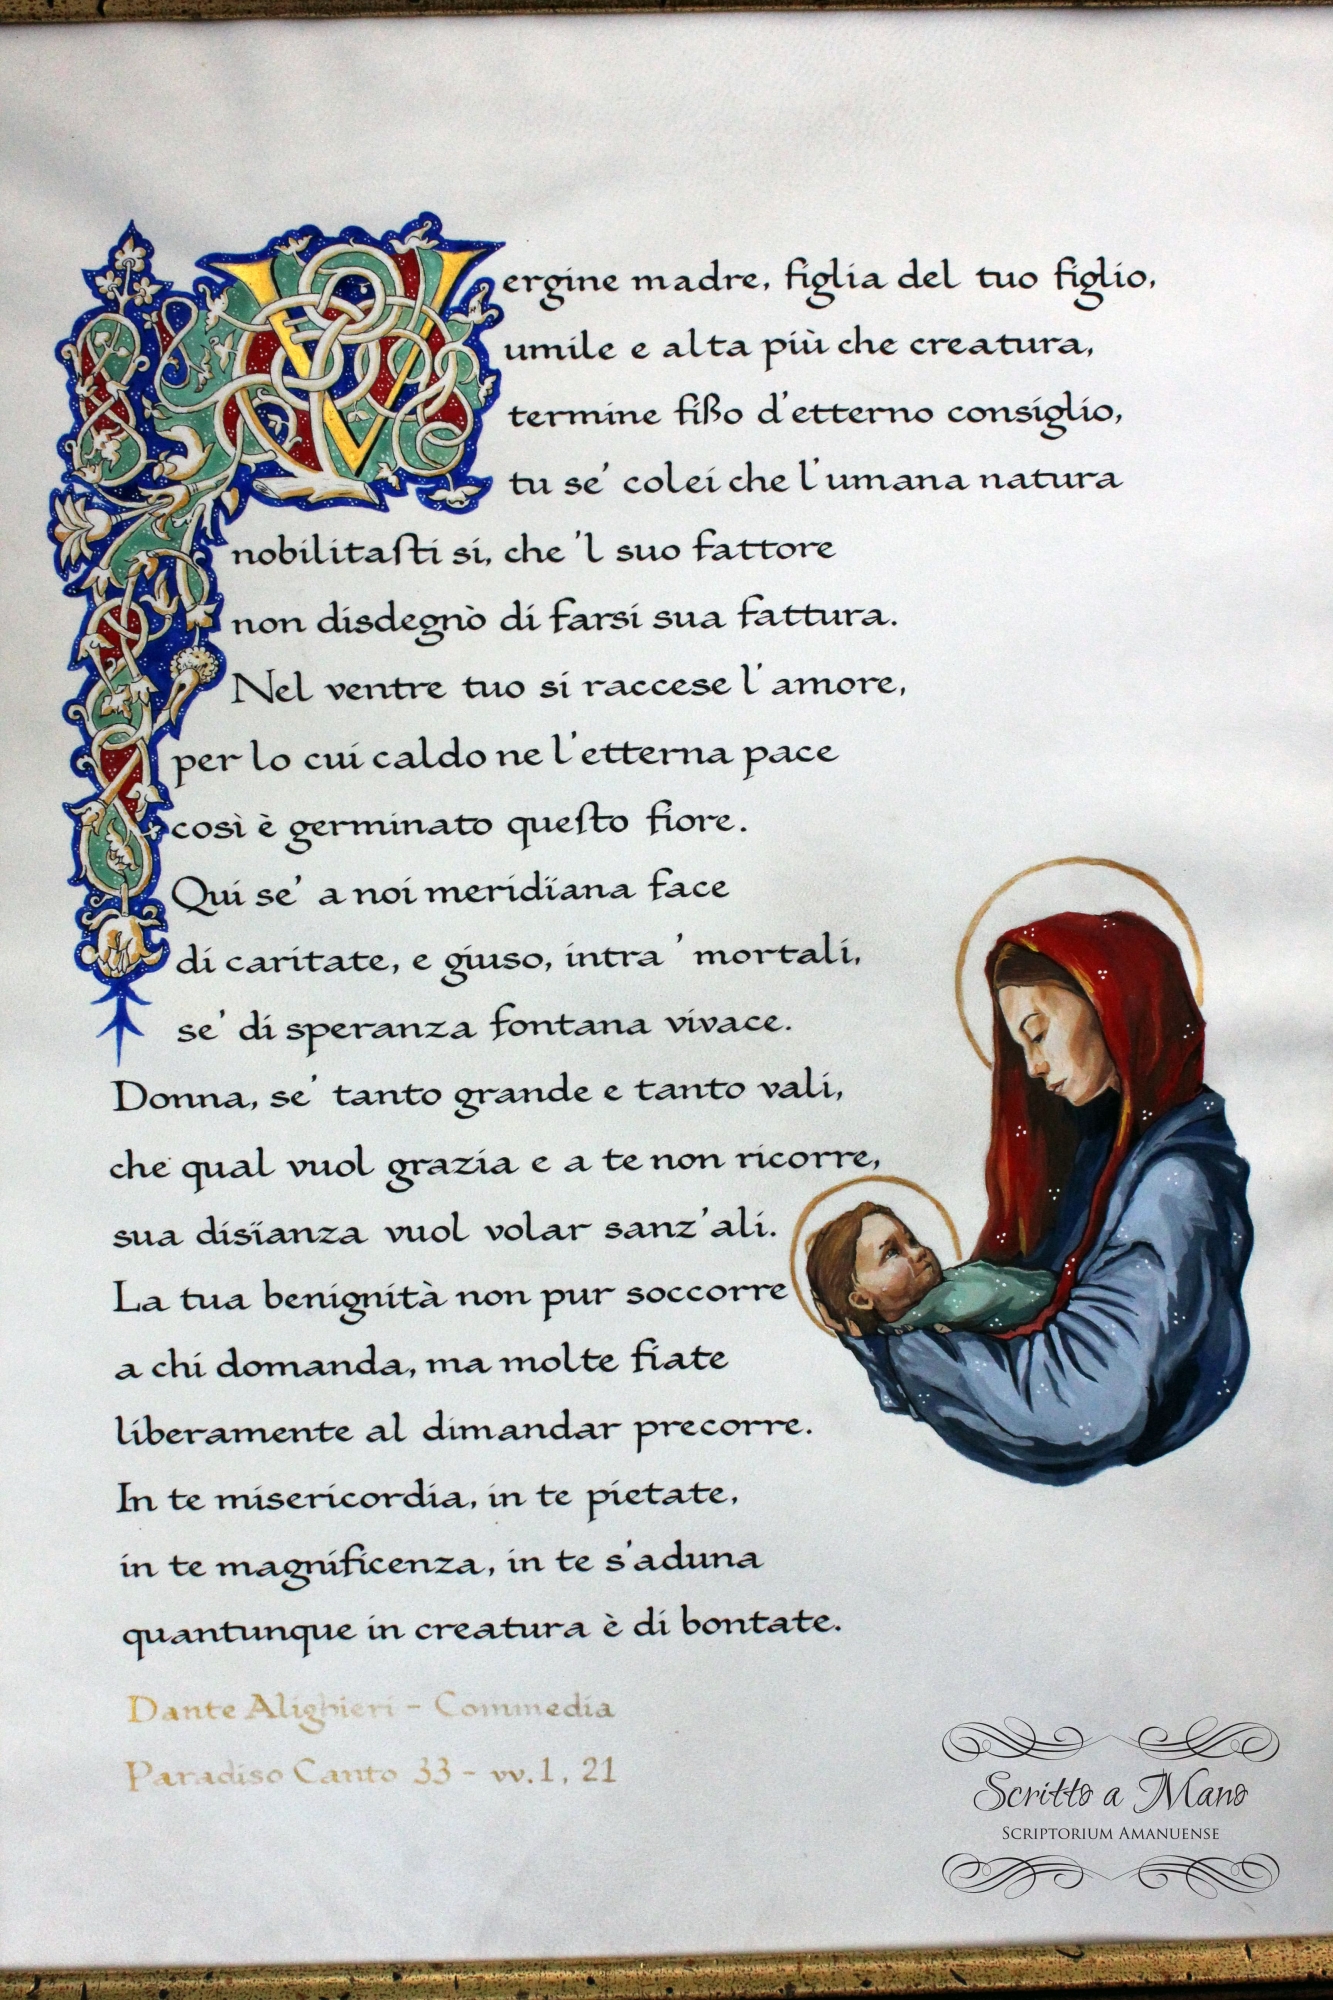 Vergine madre, figlia del tuo figlio,
umile e alta più che creatura,
termine fißo d'etterno consiglio,
tu se' colei che l'umana natura
nobilitaſti si, che 'l suo fattore
non disdegnò di farsi sua fattura.
Nel ventre tuo si raccese l'amore,
per lo cui caldo ne l'etterna pace
così è germinato queſto fiore.
Qui se' a noi meridïana face
di caritate, e giuso, intra ' mortali,
se' di speranza fontana vivace.
Donna, se' tanto grande e tanto vali,
che qual vuol grazia e a te non ricorre,
sua disïanza vuol volar sanz'ali.
La tua benignità non pur soccorre
a chi domanda, ma molte fiate
liberamente al dimandar precorre.
In te misericordia, in te pietate,
in te magnificenza, in te s'aduna
quantunque in creatura è di bontate.
Dante Alighieri - Commedia
Paradiso Canto 33 - vv.1, 21
Scritto a Mano
SCRIPTORIUM AMANUENSE